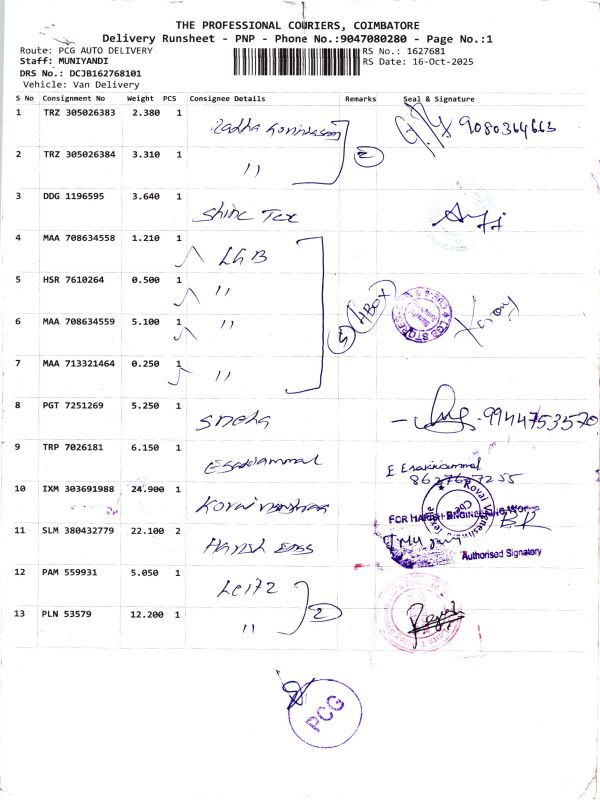 THE PROFESSIONAL COURIERS, COIMBATORE
Delivery Runsheet - PNP - Phone No.:9047080280 - Page No.:1
Route: PCG AUTO DELIVERY
RS No.: 1627681
Staff: MUNIYANDI
RS Date: 16-Oct-2025
DRS No.: DCJB162768101
Vehicle: Van Delivery
S No Consignment No Weight PCS Consignee Details Remarks Seal & Signature
1 TRZ 305026383 2.380 1 Radha 9080364663
2 TRZ 305026384 3.310 1 " 2
3 DDG 1196595 3.640 1 Shine Tex
4 MAA 708634558 1.210 1 LGB
5 HSR 7610264 0.500 1 "
6 MAA 708634559 5.100 1 "
7 MAA 713321464 0.250 1 "
8 PGT 7251269 5.250 1 Sneha 9944753570
9 TRP 7026181 6.150 1 Esakkiammal E. Esakkiammal
10 IXM 303691988 24.900 1
FOR
11 SLM 380432779 22.100 2 Harish
Authorised Signatory
12 PAM 559931 5.050 1 Leitz
13 PLN 53579 12.200 1 " 2
PCG